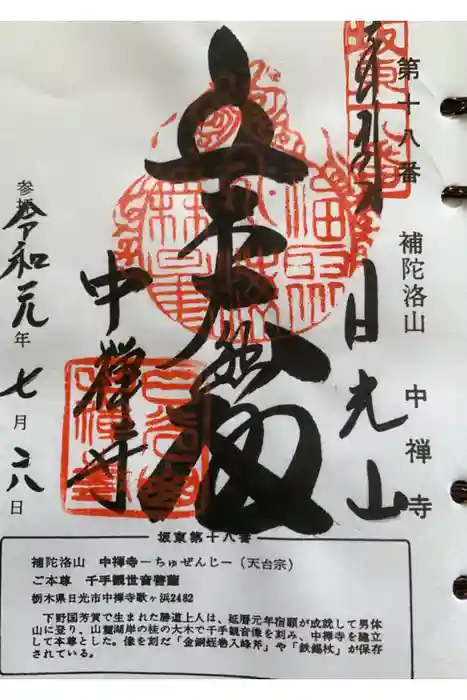 坂東十八番
奉拝
第十八番
補陀洛山 中禅寺
日光山
立木大悲殿
中禅寺
参拝
令和元年七月六日
坂東第十八番
補陀洛山 中禅寺ーちゅぜんじー(天台宗)
ご本尊 千手観世音菩薩
栃木県日光市中禅寺歌ヶ浜2482
下野国芳賀で生まれた勝道上人は、延暦元年宿願が成就して男体
山に登り、山麓湖岸の桂の大木で千手観音像を刻み、中禅寺を建立
して本尊とした。像を刻だ「金銅蛭巻入峰斧」や「鉄錫杖」が保存
されている。